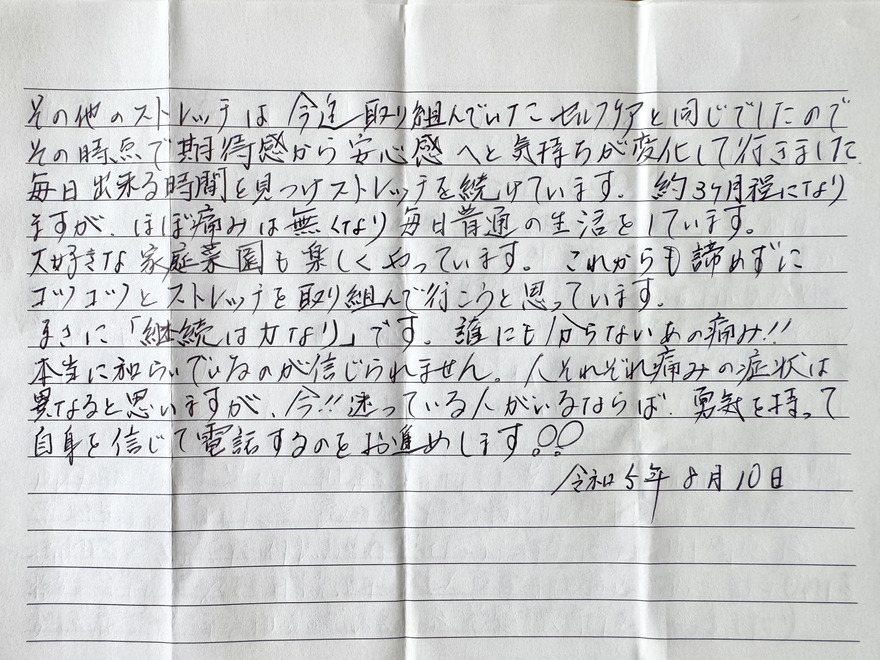 その他のストレッチは今迄取り組んでいたセルフケアと同じでしたので
その時点で期待感から安心感へと気持ちが変化して行きました
毎日出来る時間を見つけストレッチを続けています。約3ヶ月程になり
ますが、ほぼ痛みは無くなり毎日普通の生活をしています。
大好きな家庭菜園も楽しくやっています。これからも諦めずに
コツコツとストレッチを取り組んで行こうと思っています。
まさに「継続は力なり」です。誰にも分らないあの痛み!!
本当に和らいでいるのが信じられません。人それぞれ痛みの症状は
異なると思いますが、今!!迷っている人がいるならば、勇気を持って
自身を信じて電話するのをお進めします!!
令和5年8月10日